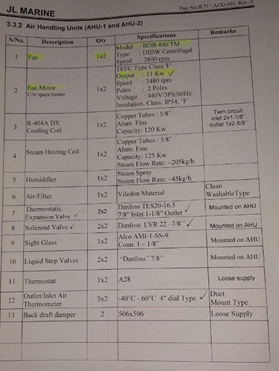 JL MARINE
3.3.2 Air Handling Units (AHU-1 and AHU-2)
S/No. Description Qty Specifications Remarks
1 Fan 1x2 Model : BDB 400/TM
Type : DIDW Centrifugal
Speed : 2800 rpm
2 Fan Motor 1x2 TEFC Type Class 'F'
C/w space heater Output : 11 Kw
Speed : 3480 rpm
Poles : 2 Poles
Voltage : 440V/3Ph/60Hz
Insulation, Class: IP54, 'F'
3 R-404A DX Cooling Coil 1x2 Copper Tubes : 5/8"
Alum. Fins
Capacity: 120 Kw
Twin circuit
inlet 2x1-1/8",
4 Steam Heating Coil 1x2 Copper Tubes : 5/8"
Alum. Fins
Capacity: 125 Kw
Steam Flow Rate: ~205kg/h
5 Humidifier 1x2 Steam Spray
Steam Flow Rate: ~45kg/h
6 Air-Filter 1x2 Viledon Material Clean
Washable Type
7 Thermostatic Expansion Valve 2x2 Danfoss TES20-16.5
7/8" Inlet 1-1/8" Outlet Mounted on AHU
8 Solenoid Valve 2x2 Danfoss EVR 22 - 7/8" Mounted on AHU
9 Sight Glass 1x2 Alco AMI-1-SS-9
Conn. 1 - 1/8" Mounted on AHU
10 Liquid Stop Valves 2x2 "Danfoss" 7/8" Mounted on AHU
11 Thermostat 1x2 A28 Loose supply
12 Outlet/Inlet Air Thermometer 3x2 -40°C - 60°C 4" dial Type Duct
Mount Type
13 Back draft damper 2 506x506 Loose Supply